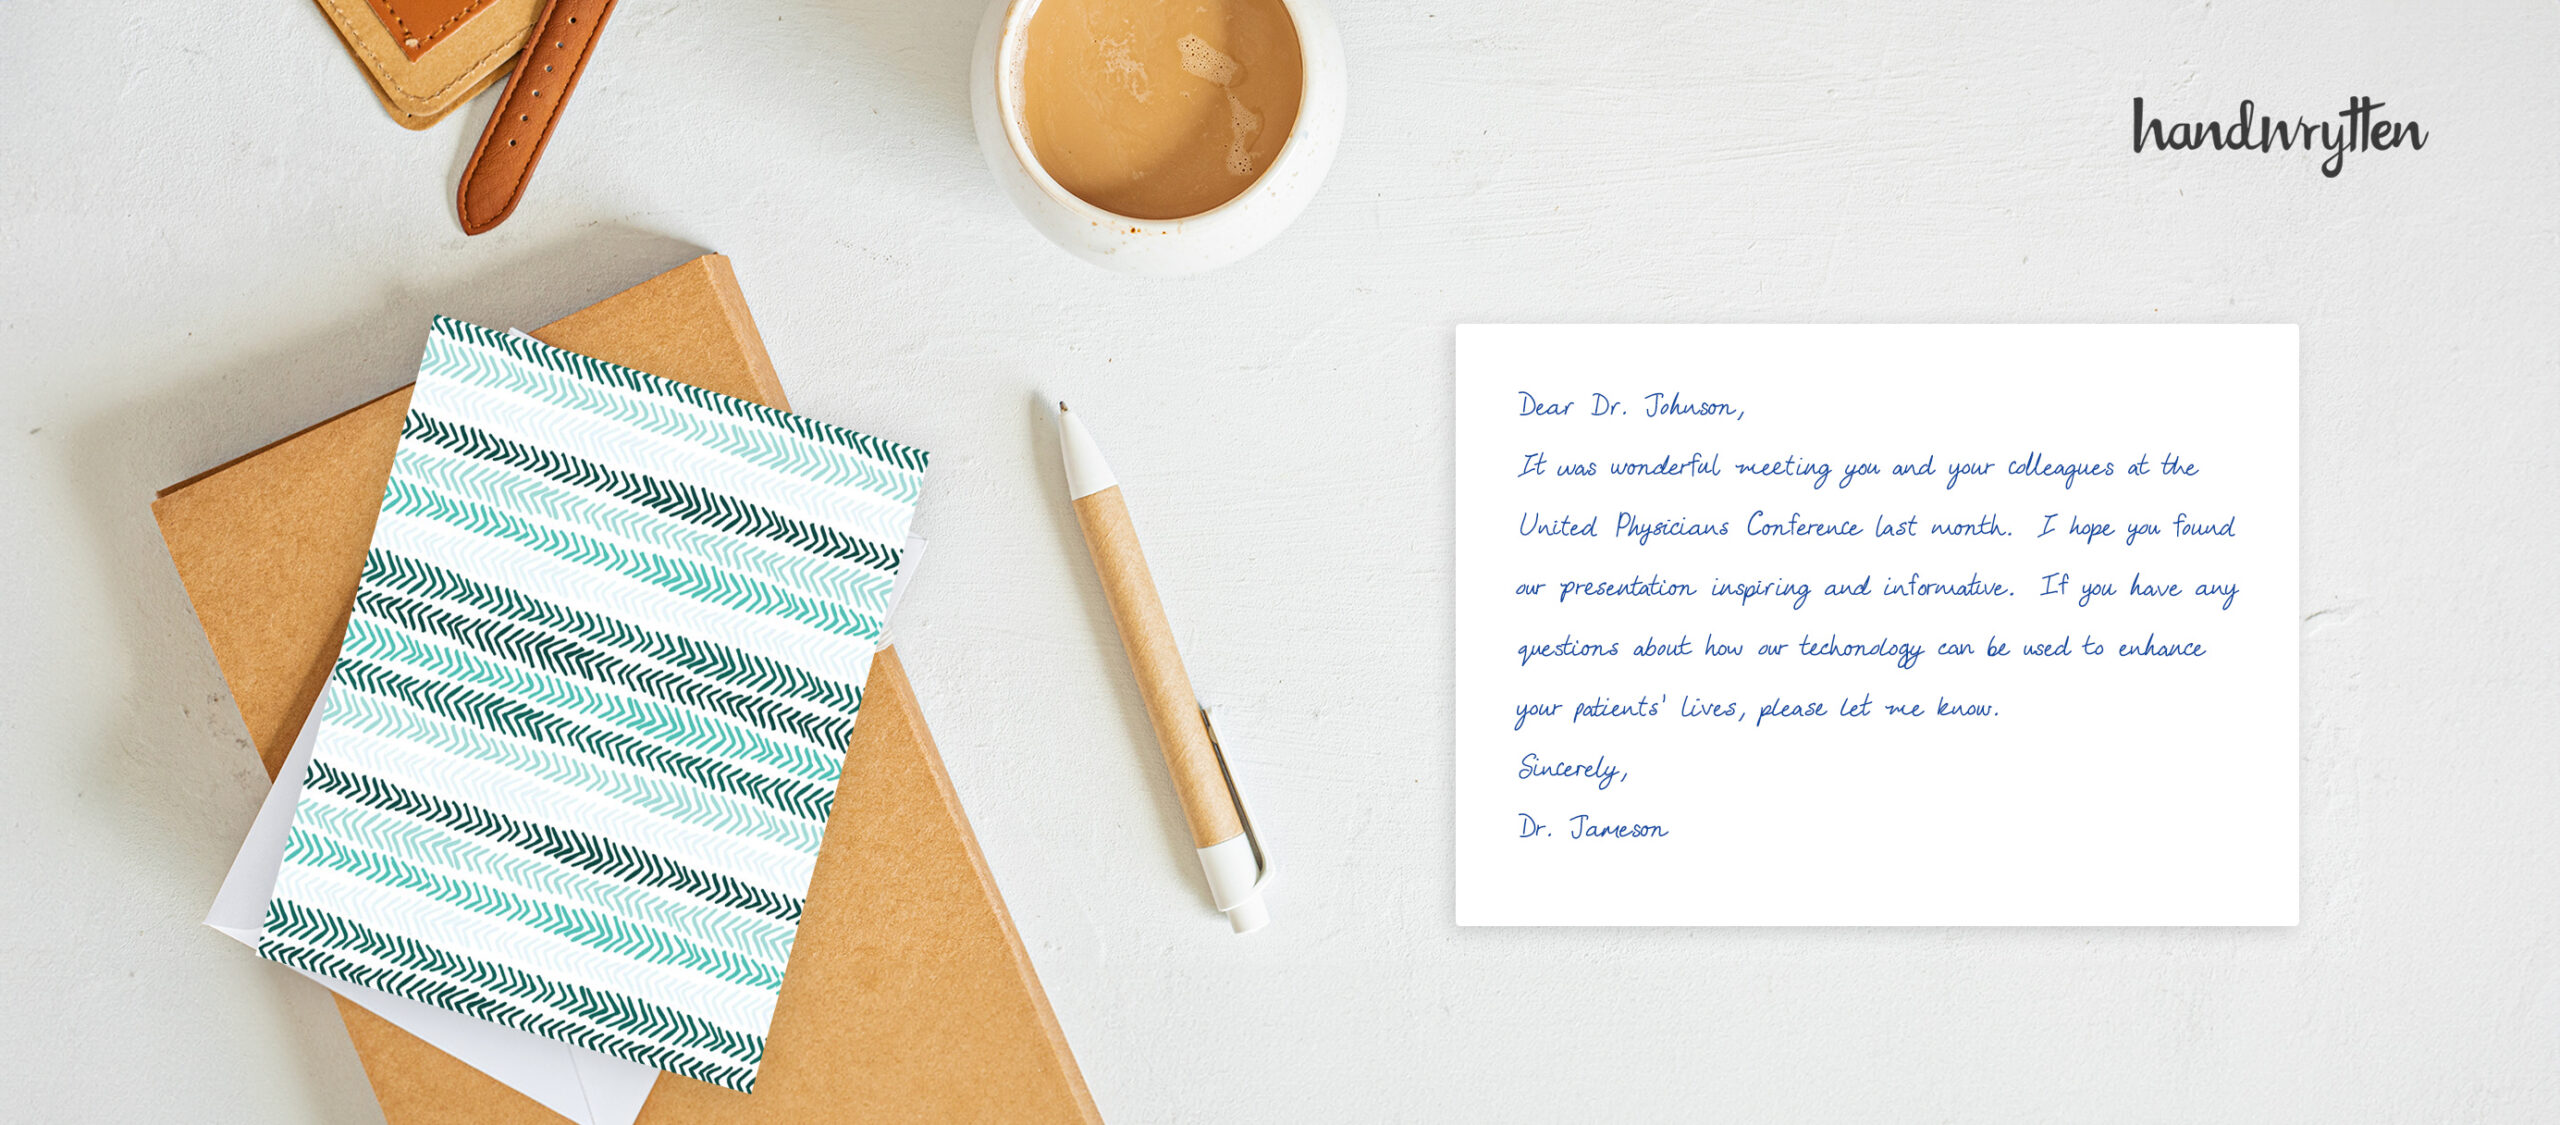 handwrytten
Dear Dr. Johnson,
It was wonderful meeting you and your colleagues at the
United Physicians Conference last month. I hope you found
our presentation inspiring and informative. If you have any
questions about how our techonology can be used to enhance
your patients' lives, please let me know.
Sincerely,
Dr. Jameson